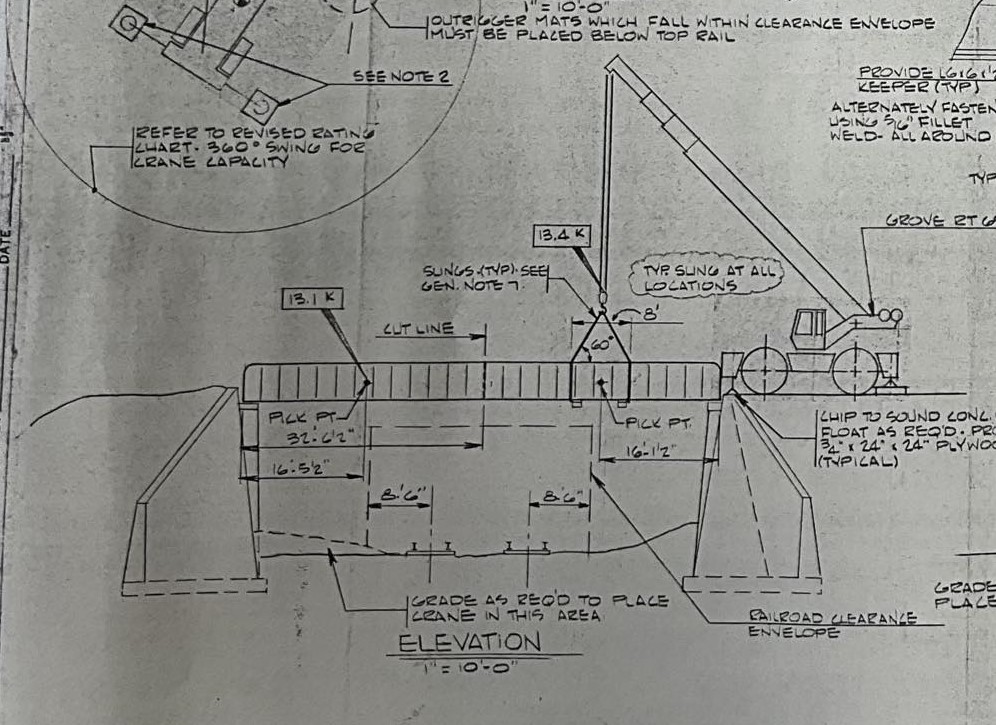 1" = 10'-0"
OUTRIGGER MATS WHICH FALL WITHIN CLEARANCE ENVELOPE
MUST BE PLACED BELOW TOP RAIL
SEE NOTE 2
REFER TO REVISED RATING
CHART. 360° SWING FOR
CRANE CAPACITY
DATE
PROVIDE L6x6x1/2
KEEPER (TYP)
ALTERNATELY FASTEN
USING 5/16" FILLET
WELD - ALL AROUND
TYP
GROVE RT
13.4 K
SLINGS (TYP). SEE
GEN. NOTE 7.
TYP. SLING AT ALL
LOCATIONS
13.1 K
CUT LINE
8'
60°
PICK PT.
PICK PT.
32'-6 1/2"
16'-5 1/2"
16'-1 1/2"
CHIP TO SOUND CONC.
FLOAT AS REQ'D.
3/4" x 24" x 24"
(TYPICAL)
8'-6"
8'-6"
GRADE AS REQ'D TO PLACE
CRANE IN THIS AREA
RAILROAD CLEARANCE
ENVELOPE
GRADE
PLACE
ELEVATION
1" = 10'-0"